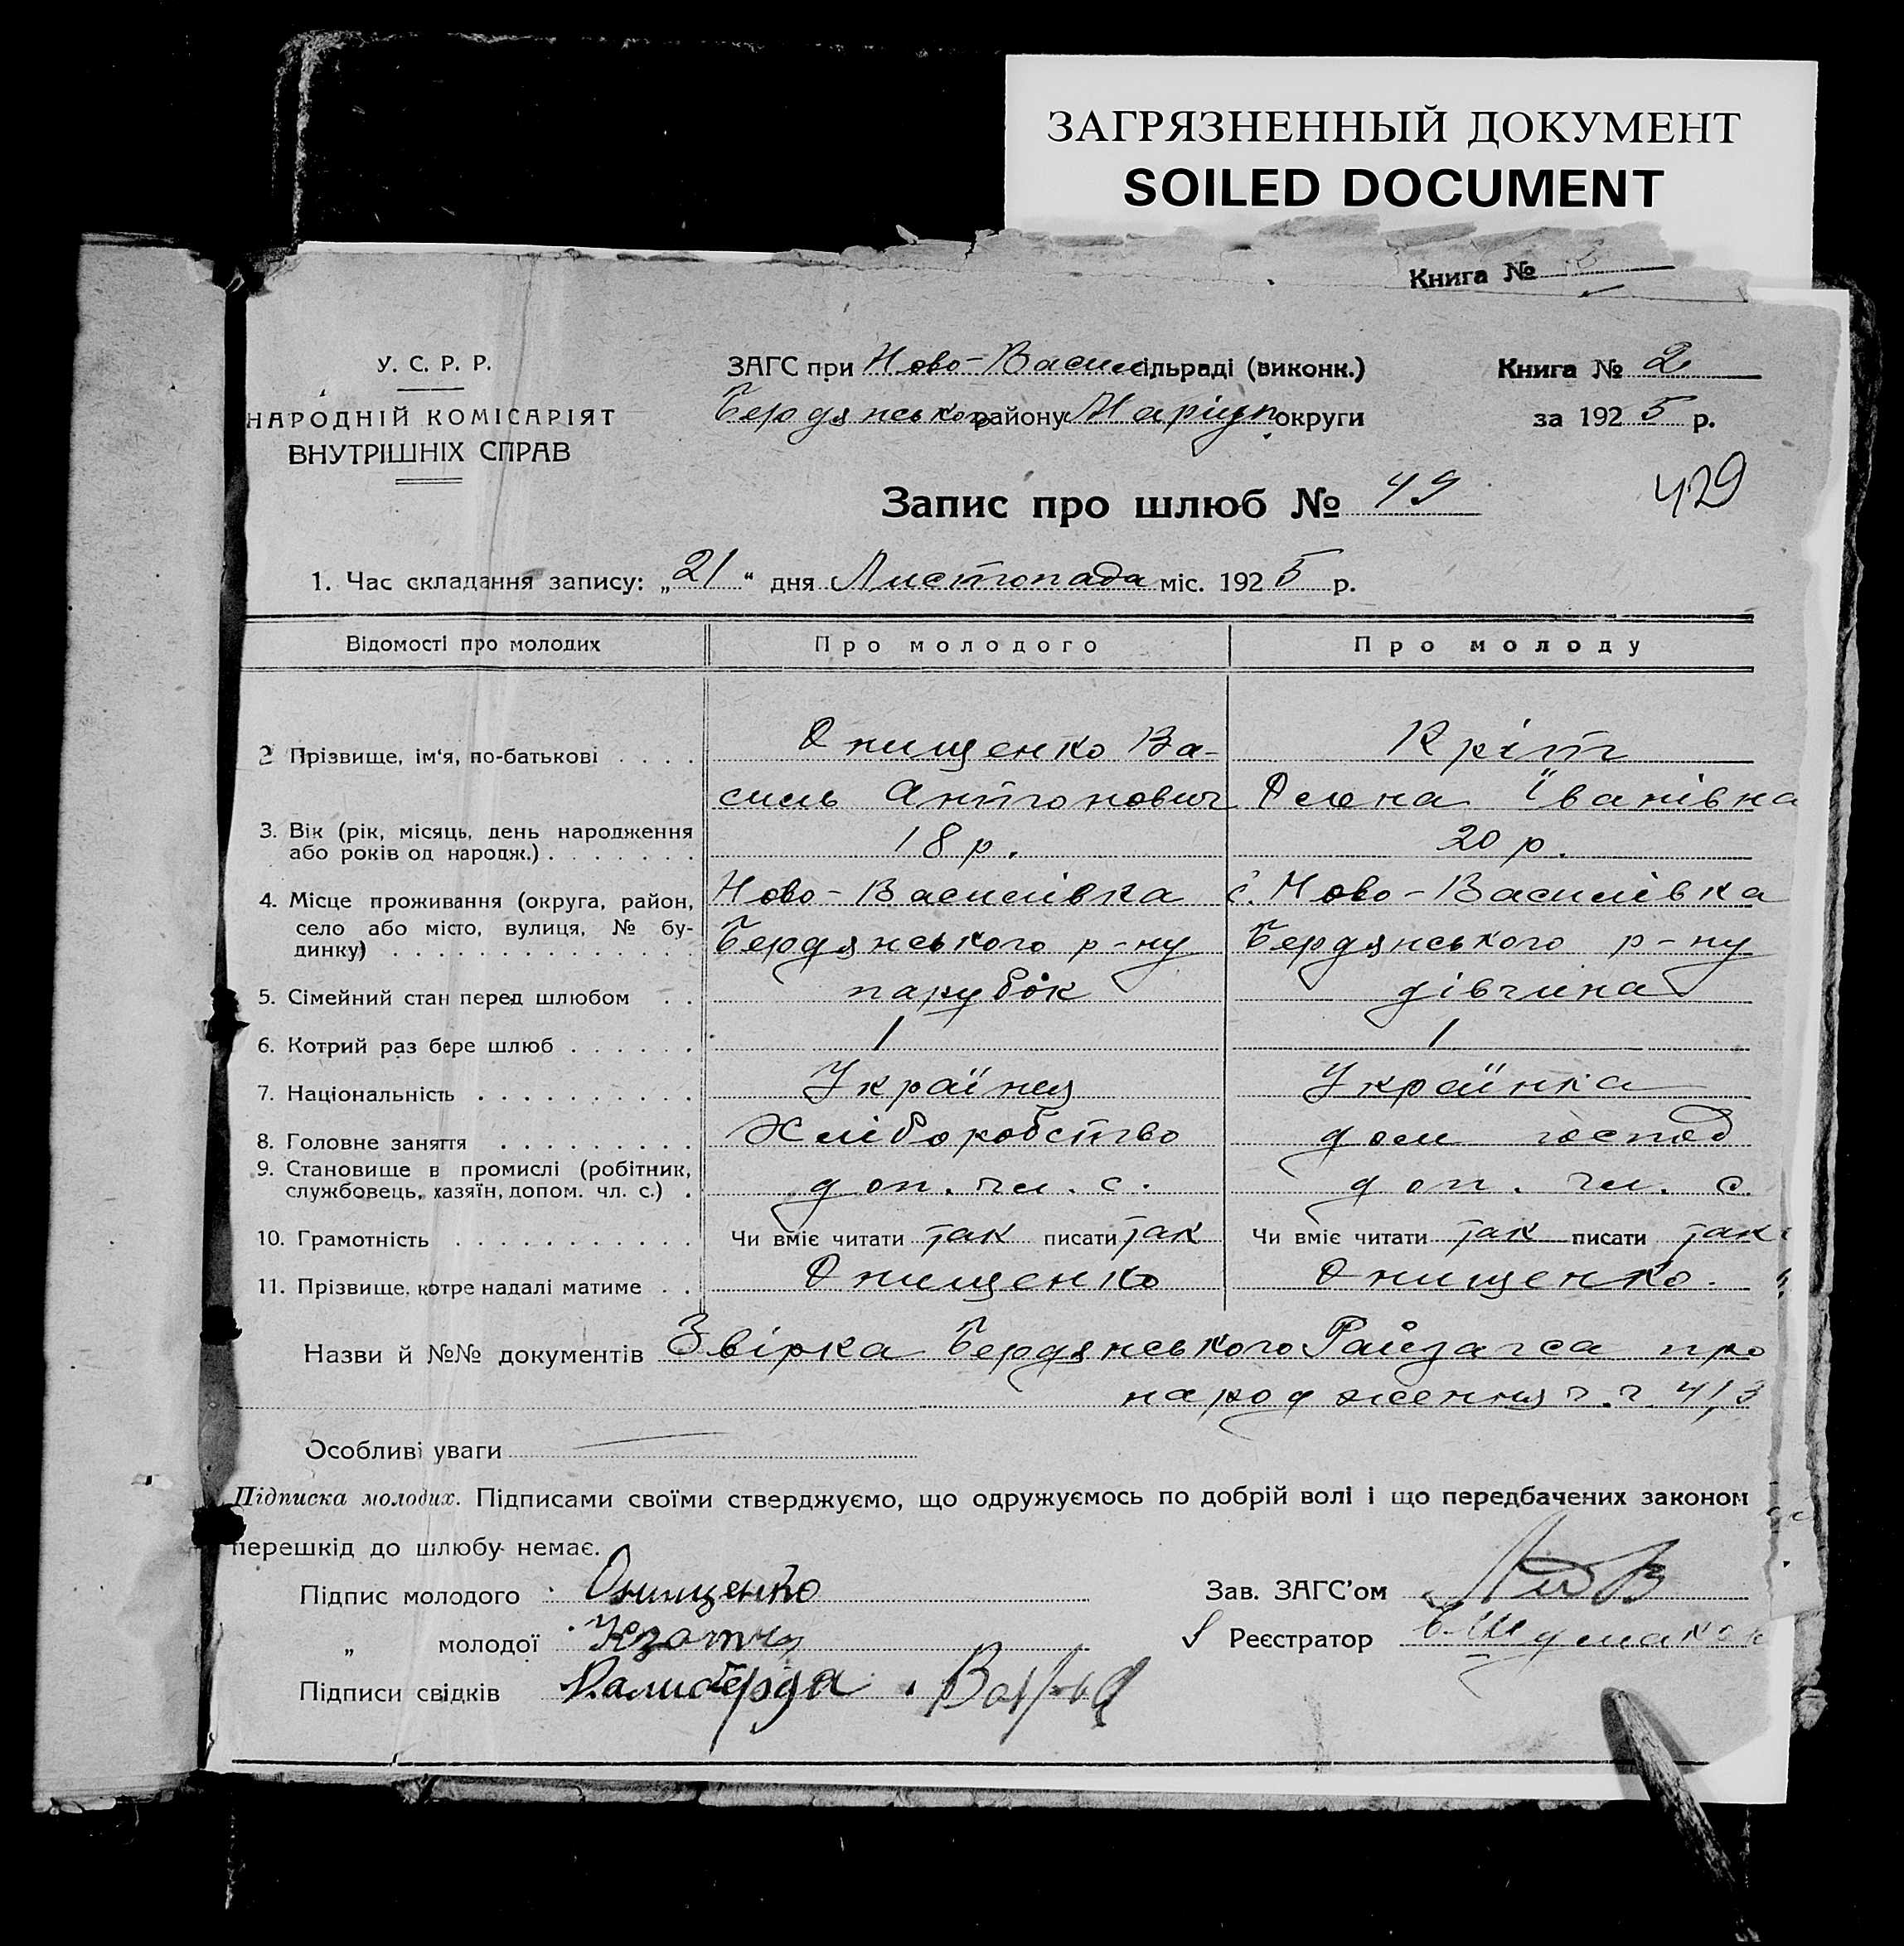 ЗАГРЯЗНЕННЫЙ ДОКУМЕНТ
SOILED DOCUMENT
Книга №
У. С. Р. Р.
НАРОДНІЙ КОМІСАРІЯТ
ВНУТРІШНІХ СПРАВ
ЗАГС при Ново-Васил сільраді (виконк.)
Бердянського району Маріуп округи
Книга № 2
за 1925 р.
Запис про шлюб № 49
429
1. Час складання запису: „21“ дня Листопада міс. 1925 р.
Відомості про молодих Про молодого Про молоду
2 Прізвище, ім'я, по-батькові . . . . Онищенко Ва- Кріт
силь Антонович Олена Іванівна
3. Вік (рік, місяць, день народження
або років од народж.) . . . . . . . 18 р. 20 р.
4. Місце проживання (округа, район, Ново-Василівка с. Ново-Василівка
село або місто, вулиця, № бу-
динку) . . . . . . . . . . . . . . Бердянського р-ну Бердянського р-ну
5. Сімейний стан перед шлюбом . . парубок дівчина
6. Котрий раз бере шлюб . . . . . . 1 1
7. Національність . . . . . . . . . . Українец Українка
8. Головне заняття . . . . . . . . . Хліборобство дом господ
9. Становище в промислі (робітник,
службовець, хазяїн, допом. чл. с.) . доп. чл. с. доп. чл. с.
10. Грамотність . . . . . . . . . . . Чи вміє читати так писати так Чи вміє читати так писати так
11. Прізвище, котре надалі матиме . . Онищенко Онищенко.
Назви й №№ документів Звірка Бердянського Райзагса про
народження ч.ч. 413
Особливі уваги
Підписка молодих. Підписами своїми стверджуємо, що одружуємось по добрій волі і що передбачених законом
перешкід до шлюбу немає.
Підпис молодого Онищенко
Зав. ЗАГС'ом
„ молодої
Реєстратор
Підписи свідків